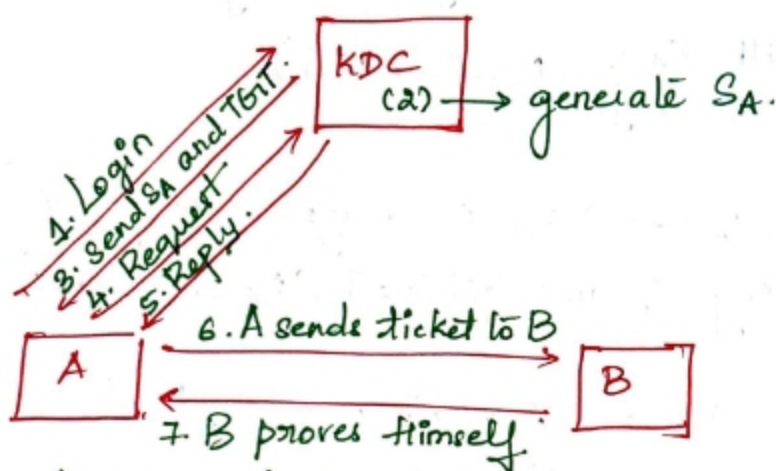 KDC
(2) → generate SA.
1. Login
3. Send SA and TGT.
4. Request
5. Reply.
6. A sends ticket to B
A
B
7. B proves Himself.